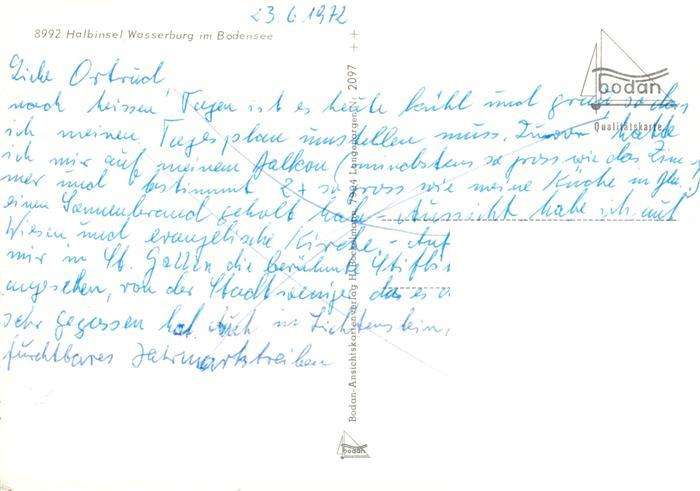 23.6.1972
8992 Halbinsel Wasserburg im Bodensee
Liebe Ortrud
nach heissen Tagen ist es heute kühl und grau so das
ich meinen Tagesplan umstellen muss. Zuvor hatte
ich mir auf meinem Balkon (mindstens so gross wie das Zim-
mer und bestimmt 2+ so gross wie meine Küche in
einen Sonnenbrand geholt habe - Aussicht habe ich auf
Wiesen und evangelische Kirche - Auf
mir in St. Gallen die berühmte Stifts
angesehen, von der Stadt weniger das es
sehr gegossen hat Auch in Lichtenstein,
furchtbares Jahrmarktstreiben
Bodan-Ansichtskartenverlag 7994 Langenargen 2097
bodan
Qualitätskarte
bodan